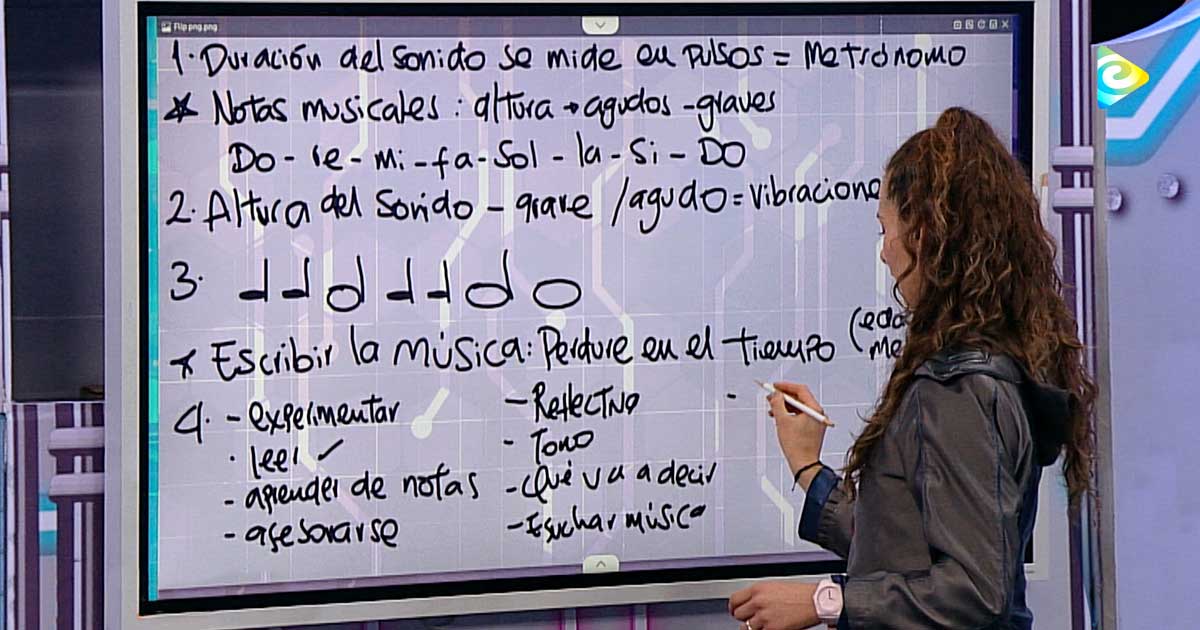 Flip png.png
1. Duración del sonido se mide en pulsos = Metrónomo
* Notas musicales: altura → agudos - graves
Do - re - mi - fa - Sol - la - Si - DO
2. Altura del Sonido - grave / agudo = Vibracione
3.
* Escribir la música: Perdure en el tiempo (eda
me
4. - experimentar
· leer ✓
- aprender de notas
- asesorarse
- Reflectivo
- Tono
- Qué va a decir
- Escuchar música
-